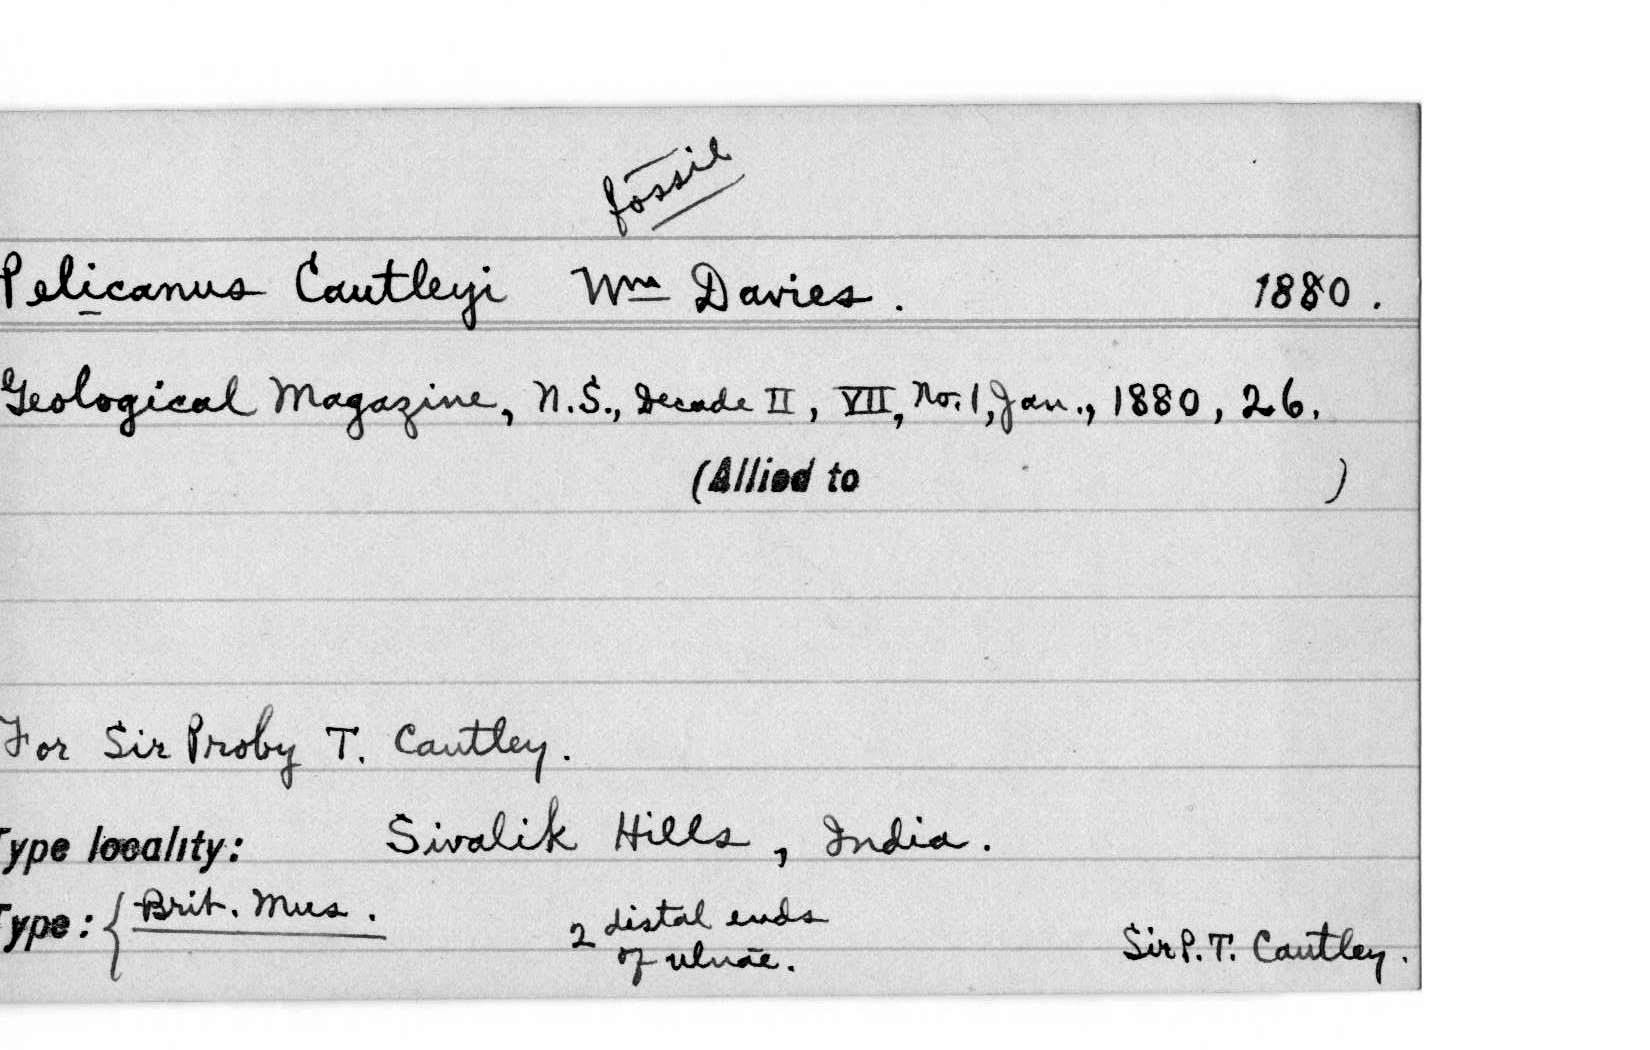 fossil
Pelicanus Cautleyi Wm Davies. 1880.
Geological Magazine, N.S., Decade II, VII, No. 1, Jan., 1880, 26.
(Allied to )
For Sir Proby T. Cautley.
Type locality: Sivalik Hills, India.
Type: { Brit. Mus. 2 distal ends
of ulnae. Sir P. T. Cautley.